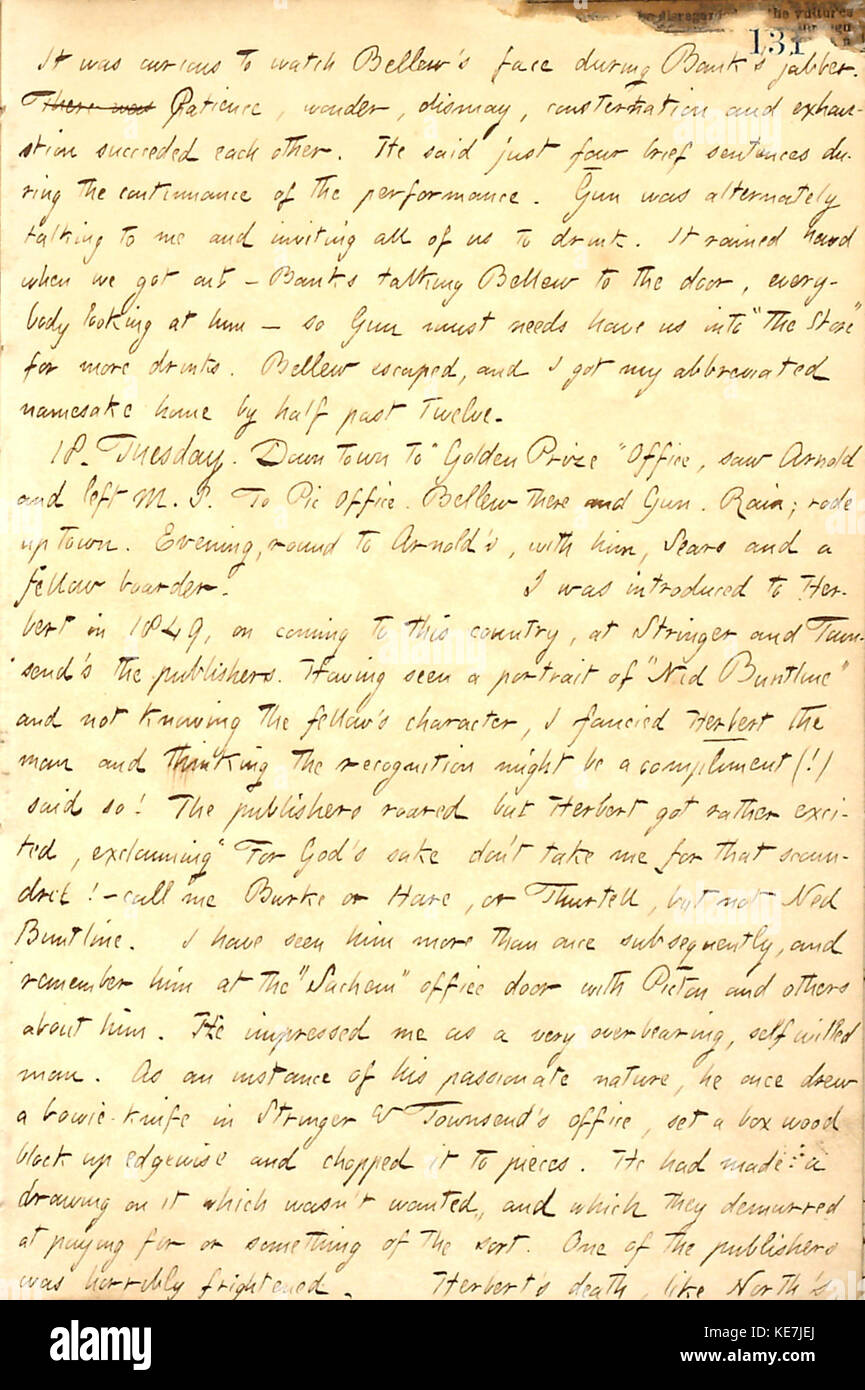 be disregard the vultures
131
It was curious to watch Bellew's face during Bank's jabber.
There was Patience, wonder, dismay, consternation and exhau-
stion succeeded each other. He said just four brief sentences du-
ring the continuance of the performance. Gun was alternately
talking to me and inviting all of us to drink. It rained hard
when we got out — Banks talking Bellew to the door, every-
body looking at him — so Gun must needs have us into "the Store"
for more drinks. Bellew escaped, and I got my abbreviated
namesake home by half past twelve.
18. Tuesday. Down town to "Golden Prize" Office, saw Arnold
and left M. S. To Pic Office. Bellew there and Gun. Rain; rode
up town. Evening, round to Arnold's, with him, Sears and a
fellow boarder. I was introduced to Her-
bert in 1849, on coming to this country, at Stringer and Town-
send's the publishers. Having seen a portrait of "Ned Buntline"
and not knowing the fellow's character, I fancied Herbert the
man and thinking the recognition might be a compliment (!)
said so! The publishers roared but Herbert got rather exci-
ted, exclaiming "For God's sake don't take me for that scoun-
drel! — call me Burke or Hare, or Thurtell, but not Ned
Buntline. I have seen him more than once subsequently, and
remember him at the "Sachem" office door with Picton and others
about him. He impressed me as a very overbearing, self willed
man. As an instance of his passionate nature, he once drew
a bowie-knife in Stringer & Townsend's office, set a box wood
block up edgewise and chopped it to pieces. He had made a
drawing on it which wasn't wanted, and which they demurred
at paying for or something of the sort. One of the publishers
was horribly frightened. Herbert's death, like North's
alamy
Image ID: KE7JEJ
www.alamy.com